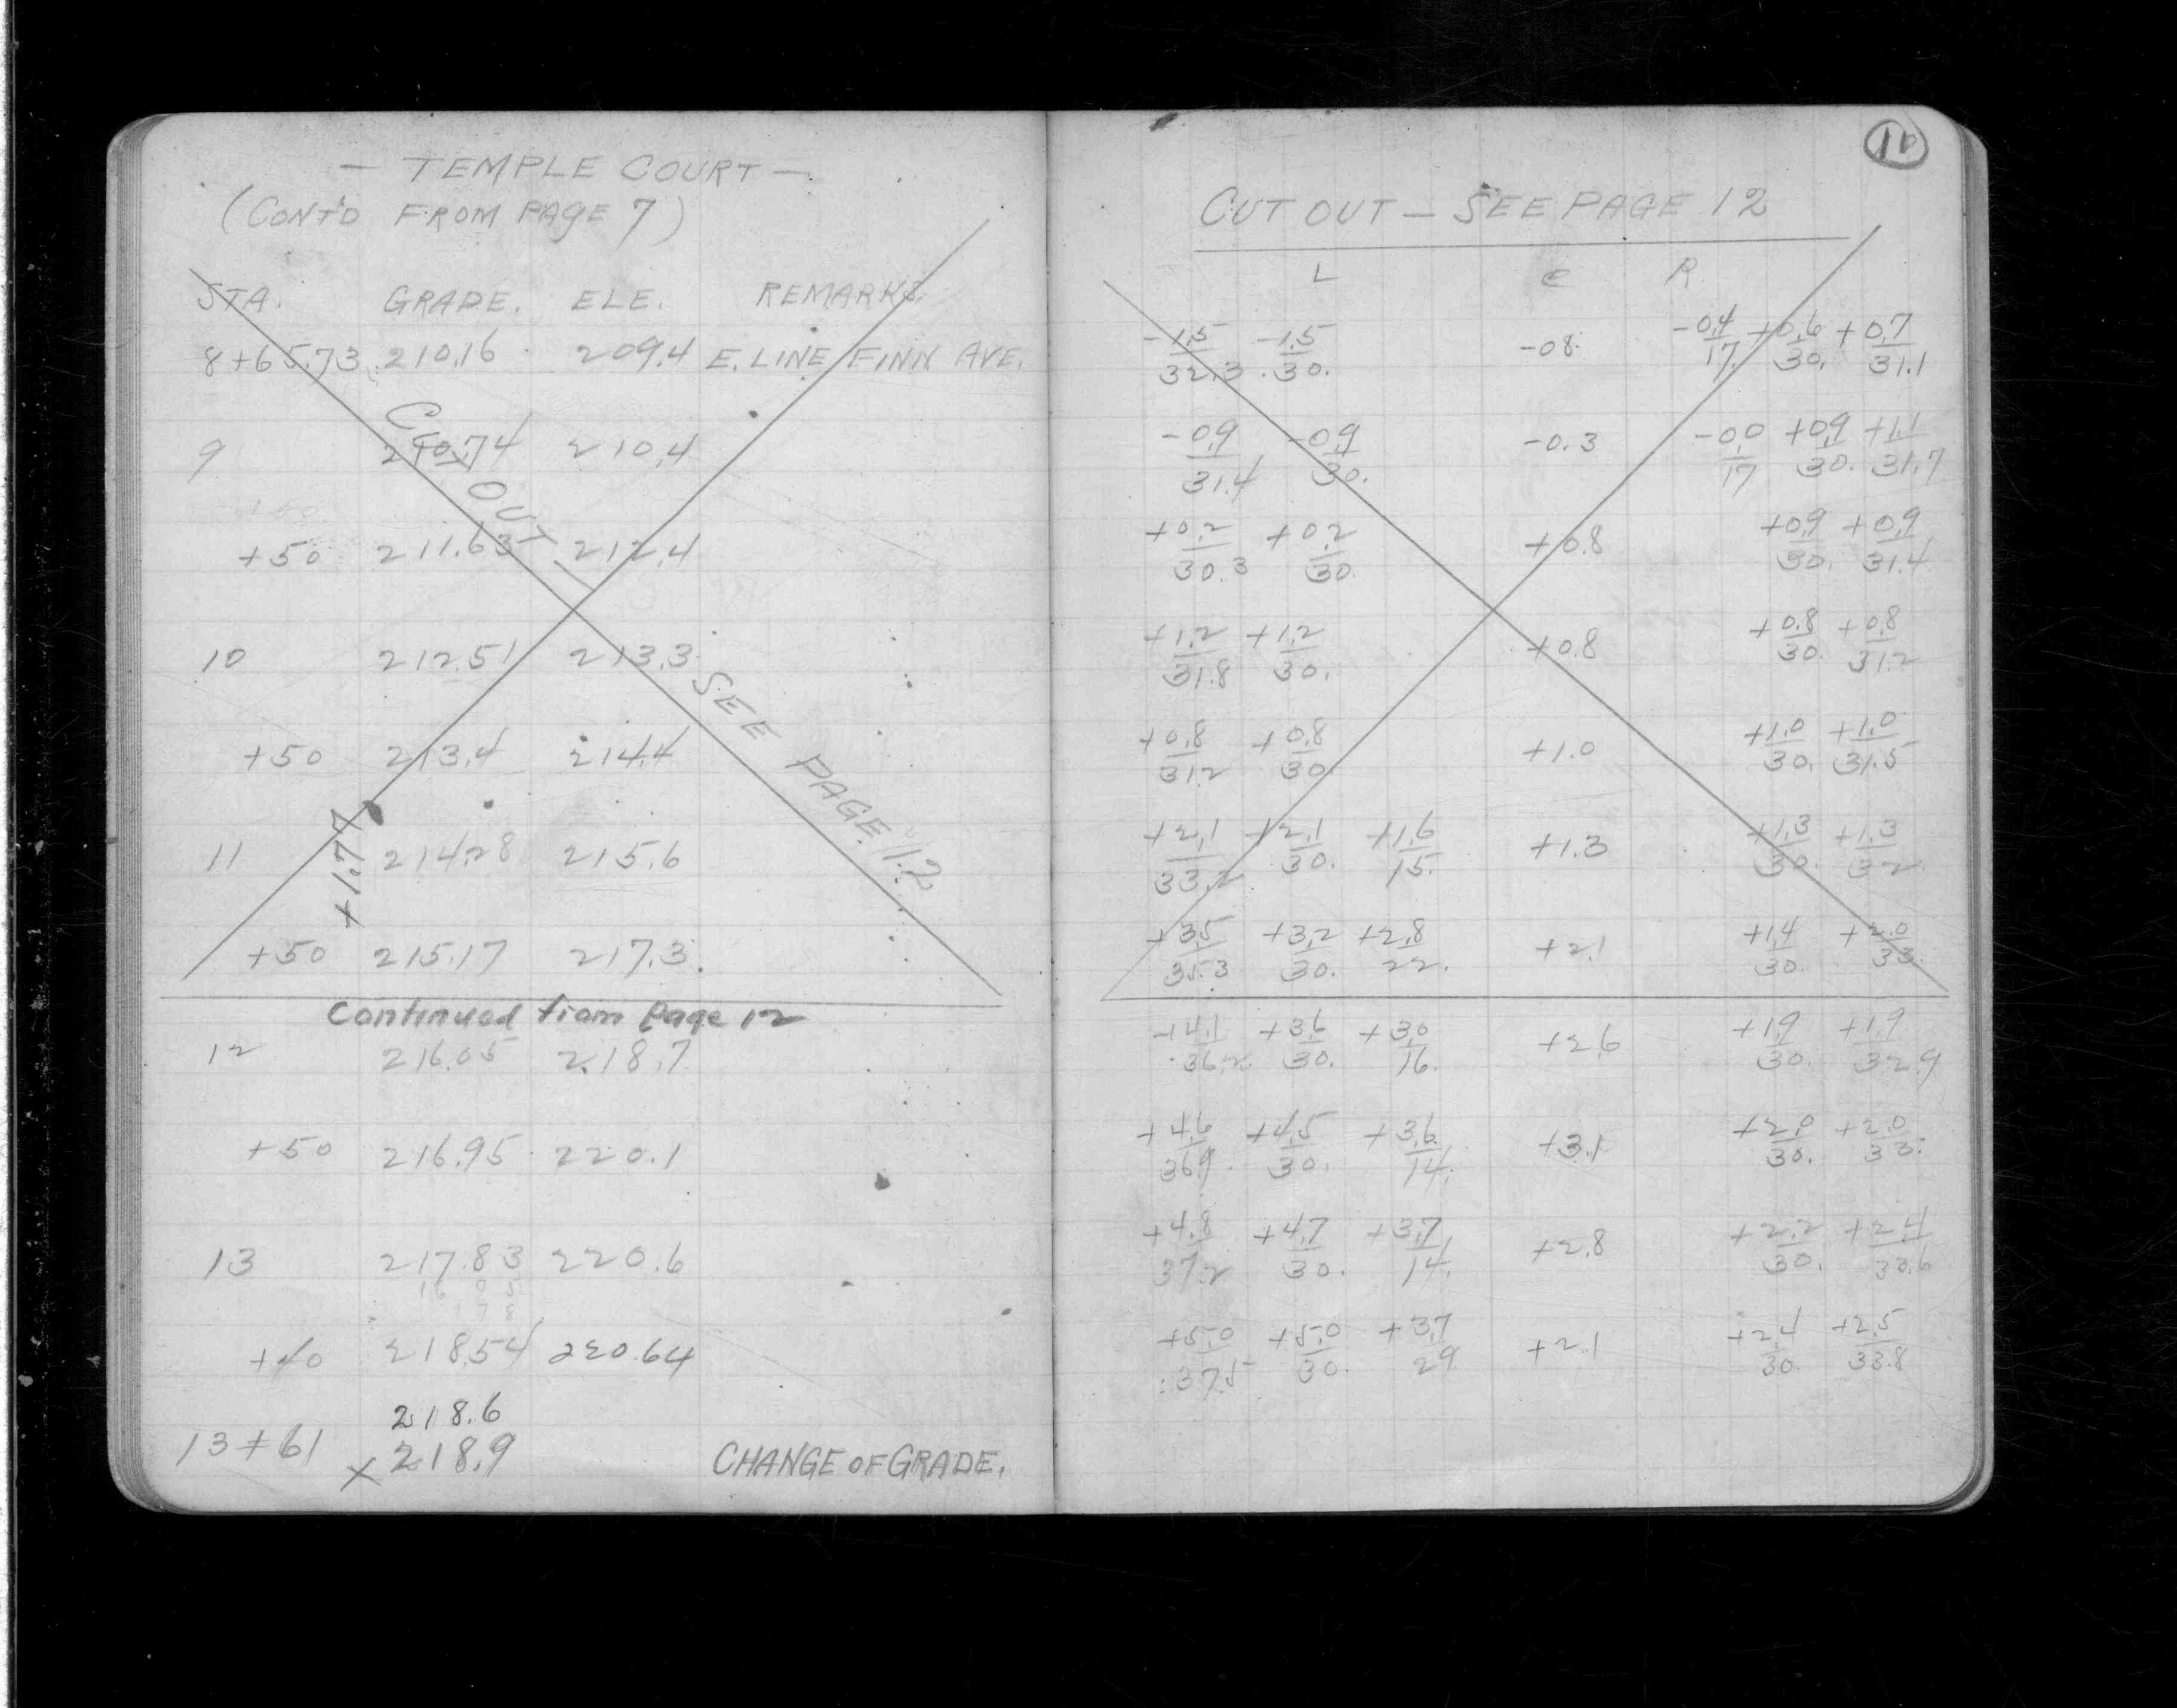 — TEMPLE COURT —
(CONT'D FROM PAGE 7)
STA. GRADE. ELE. REMARKS.
8+65.73 210.16 209.4 E. LINE FINN AVE.
9 210.74 210.4
+50 211.63 212.4
10 212.51 213.3
+50 213.4 214.4
11 214.28 215.6
+50 215.17 217.3
CUT OUT — SEE PAGE 12
+1.77
Continued from Page 12
12 216.05 218.7
+50 216.95 220.1
13 217.83 220.6
16 05
1 78
+40 218.54 220.64
218.6
13+61 x 218.9 CHANGE OF GRADE.
CUT OUT — SEE PAGE 12
L C R
-1.5 -1.5 -0.8 -0.4 +0.6 +0.7
32.3 30. 17. 30. 31.1
-0.9 -0.9 -0.3 -0.0 +0.9 +1.1
31.4 30. 17 30. 31.7
+0.2 +0.2 +0.8 +0.9 +0.9
30.3 30. 30. 31.4
+1.2 +1.2 +0.8 +0.8 +0.8
31.8 30. 30. 31.2
+0.8 +0.8 +1.0 +1.0 +1.0
31.2 30. 30. 31.5
+2.1 +2.1 +1.6 +1.3 +1.3 +1.3
33.2 30. 15. 30. 32.
+3.5 +3.2 +2.8 +2.1 +1.4 +2.0
35.3 30. 22. 30. 33.
+4.1 +3.6 +3.0 +2.6 +1.9 +1.9
36.2 30. 16. 30. 32.9
+4.6 +4.5 +3.6 +3.1 +2.0 +2.0
36.9 30. 14. 30. 33.
+4.8 +4.7 +3.7 +2.8 +2.2 +2.4
37.2 30. 14. 30. 33.6
+5.0 +5.0 +3.7 +2.1 +2.4 +2.5
37.5 30. 29 30. 33.8